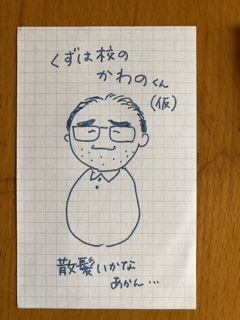 くずは校の
かわのくん
(仮)
散髪いかな
あかん…